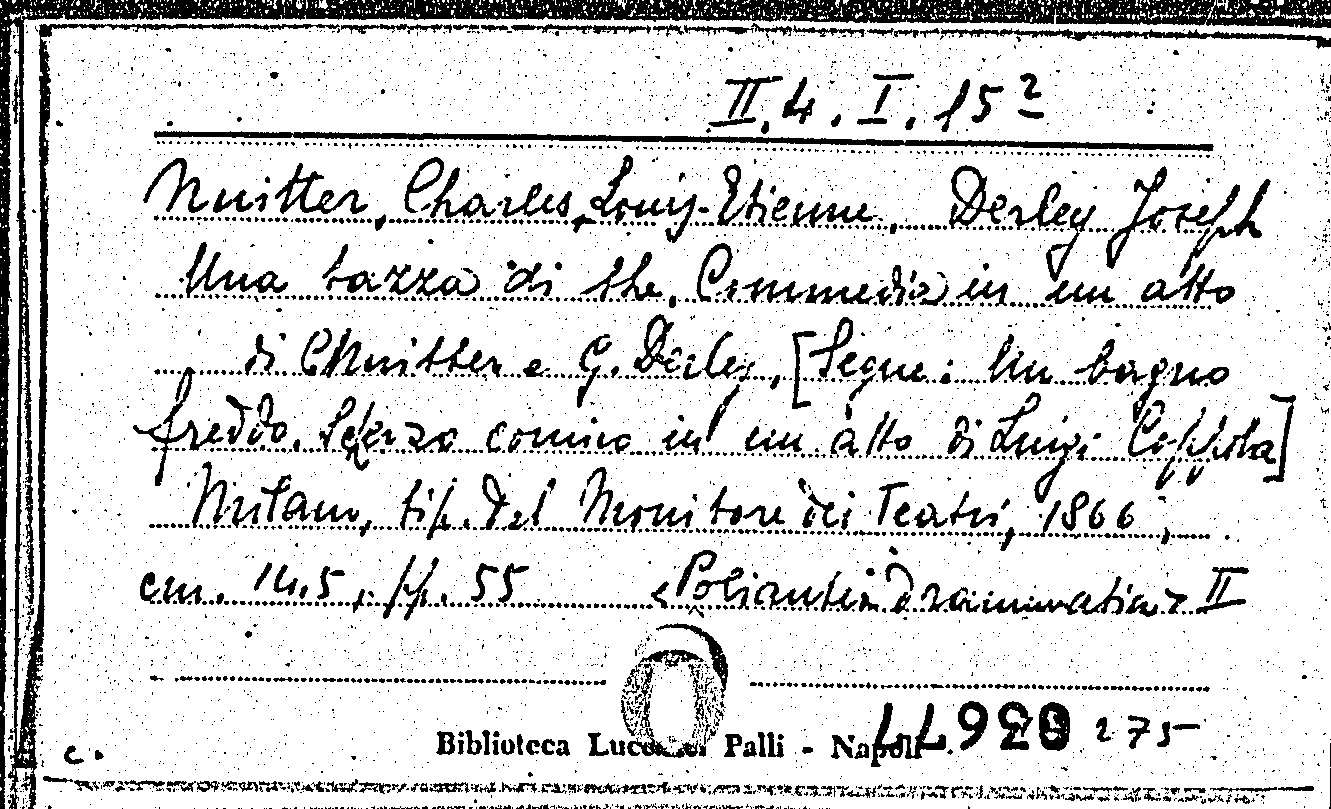 II.4.I.15²
Nuitter, Charles, Louis-Etienne, Derley Joseph
Una tazza di the. Commedia in un atto
di C Nuitter e G. Derley, [Segue: Un bagno
freddo. Scherzo comico in un atto di Luigi Coppola]
Milano, tip. del Monitore dei Teatri, 1866,
cm. 14.5, pp. 55 «Poliantea Drammatica» II
Biblioteca Lucchesi Palli - Napoli
03677 275
c.